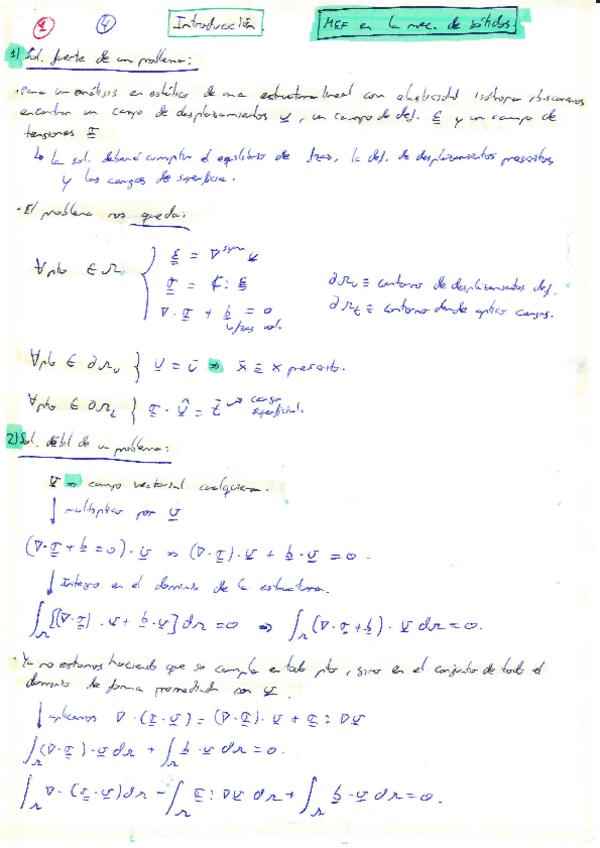 2 4 Introducción MEF en la mec. de sólidos.
1) Sol. fuerte de un problema:
· Para un análisis en estático de una estructura lineal con elasticidad isótropa buscaremos
encontrar un campo de desplazamientos u, un campo de def. ε y un campo de
tensiones σ
↳ la sol. deberá cumplir el equilibrio de fzas, la def. de desplazamientos prescritos
y las cargas de superficie.
· El problema nos queda:
∀pto ∈ Ω { ε = ∇ˢʸᵐ u
σ = ℂ : ε
∇·σ + b = 0
fzas vol.
∂Ωu ≡ contorno de desplazamientos def.
∂Ωt ≡ contorno donde aplico cargas.
∀pto ∈ ∂Ωu } u = ū ⇒ x̄ ≡ x prescrito.
∀pto ∈ ∂Ωt } σ · ν̂ = t̄ → carga
superficial.
2) Sol. débil de un problema:
v ⇒ campo vectorial cualquiera.
↓ multiplico por v
(∇·σ + b = 0)·v ⇒ (∇·σ)·v + b·v = 0.
↓ Integro en el dominio de la estructura.
∫Ω [(∇·σ)·v + b·v] dΩ = 0 ⇒ ∫Ω (∇·σ + b)·v dΩ = 0.
· Ya no estamos haciendo que se cumpla en todo pto, sino en el conjunto de todo el
dominio de forma promediada con v.
↓ aplicamos ∇·(σ·v) = (∇·σ)·v + σ : ∇v
∫Ω (∇·σ)·v dΩ + ∫Ω b·v dΩ = 0.
∫Ω ∇·(σ·v) dΩ − ∫Ω σ : ∇v dΩ + ∫Ω b·v dΩ = 0.